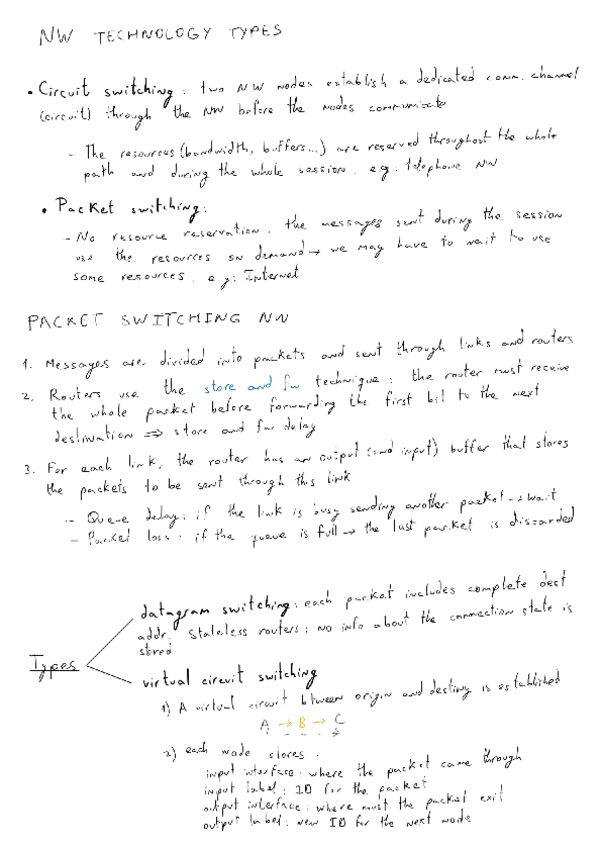 NW TECHNOLOGY TYPES
• Circuit switching: two NW nodes establish a dedicated comm. channel
(circuit) through the NW before the nodes communicate
- The resources (bandwidth, buffers...) are reserved throughout the whole
path and during the whole session. e.g: telephone NW
• Packet switching:
- No resource reservation. The messages sent during the session
use the resources on demand → we may have to wait to use
some resources. e.g: Internet
PACKET SWITCHING NW
1. Messages are divided into packets and sent through links and routers
2. Routers use the store and fw technique: the router must receive
the whole packet before forwarding the first bit to the next
destination ⇒ store and fw delay
3. For each link, the router has an output (and input) buffer that stores
the packets to be sent through this link
- Queue delay: if the link is busy sending another packet → wait
- Packet loss: if the queue is full → the last packet is discarded
Types
datagram switching: each packet includes complete dest
addr. Stateless routers: no info about the connection state is
stored
virtual circuit switching
1) A virtual circuit btween origin and destiny is established
A → B → C
2) each node stores:
input interface: where the packet came through
input label: ID for the packet
output interface: where must the packet exit
output label: new ID for the next node